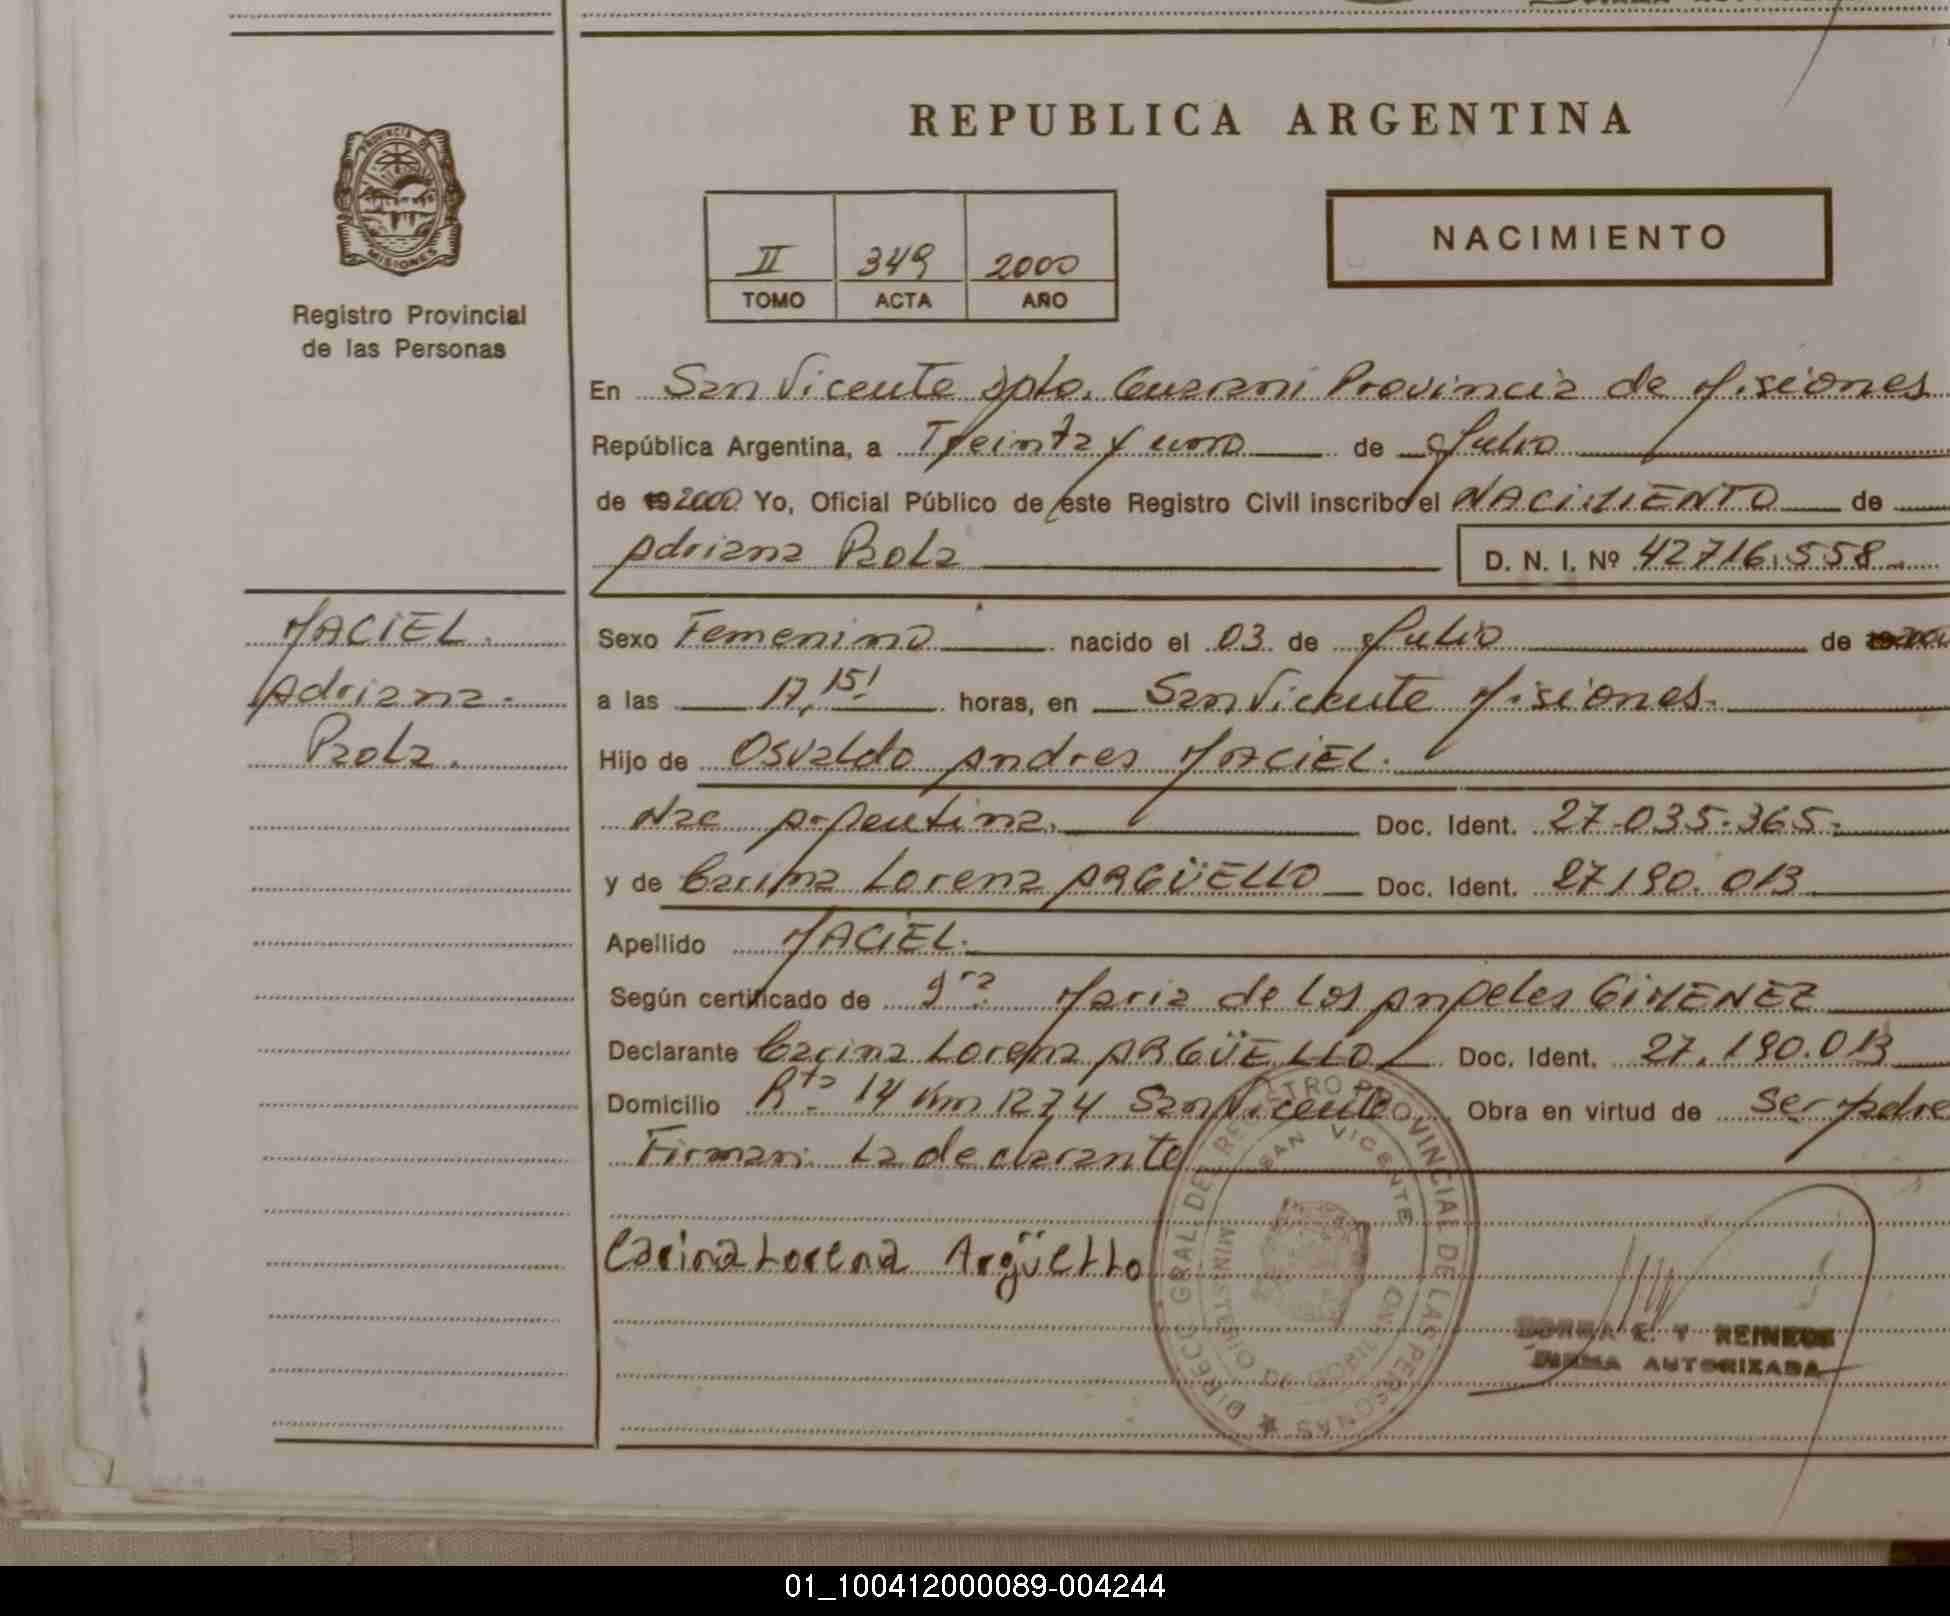 REPUBLICA ARGENTINA
PROVINCIA DE MISIONES
Registro Provincial
de las Personas
NACIMIENTO
II 349 2000
TOMO ACTA AÑO
En San Vicente Dpto. Guarani Provincia de Misiones
República Argentina, a Treinta y uno de Julio
de 19 2000 Yo, Oficial Público de este Registro Civil inscribo el NACIMIENTO de
Adriana Paola D. N. I. Nº 42716.558
MACIEL.
Adriana-
Paola.
Sexo Femenino nacido el 03 de Julio de 2000
a las 17,15' horas, en San Vicente Misiones.
Hijo de Osvaldo Andres MACIEL.
Nac Argentina. Doc. Ident. 27-035-365-
y de Carina Lorena ARGÜELLO Doc. Ident. 27190.013
Apellido MACIEL.
Según certificado de Maria de Los Angeles GIMENEZ
Declarante Carina Lorena ARGÜELLO Doc. Ident. 27.190.013
Domicilio Rta 14 Km 1274 San Vicente Obra en virtud de ser madre
Firman: La declarante
Carina Lorena Argüello
DIRECC GRAL DEL REGISTRO PROVINCIAL DE LAS PERSONAS
SAN VICENTE
MINISTERIO DE GOBIERNO
E. T. REINECK
FIRMA AUTORIZADA
01_100412000089-004244